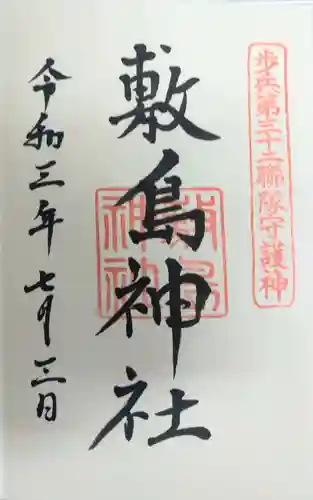 歩兵第三十二聯隊守護神
敷島神社
敷島神社
令和三年七月三日